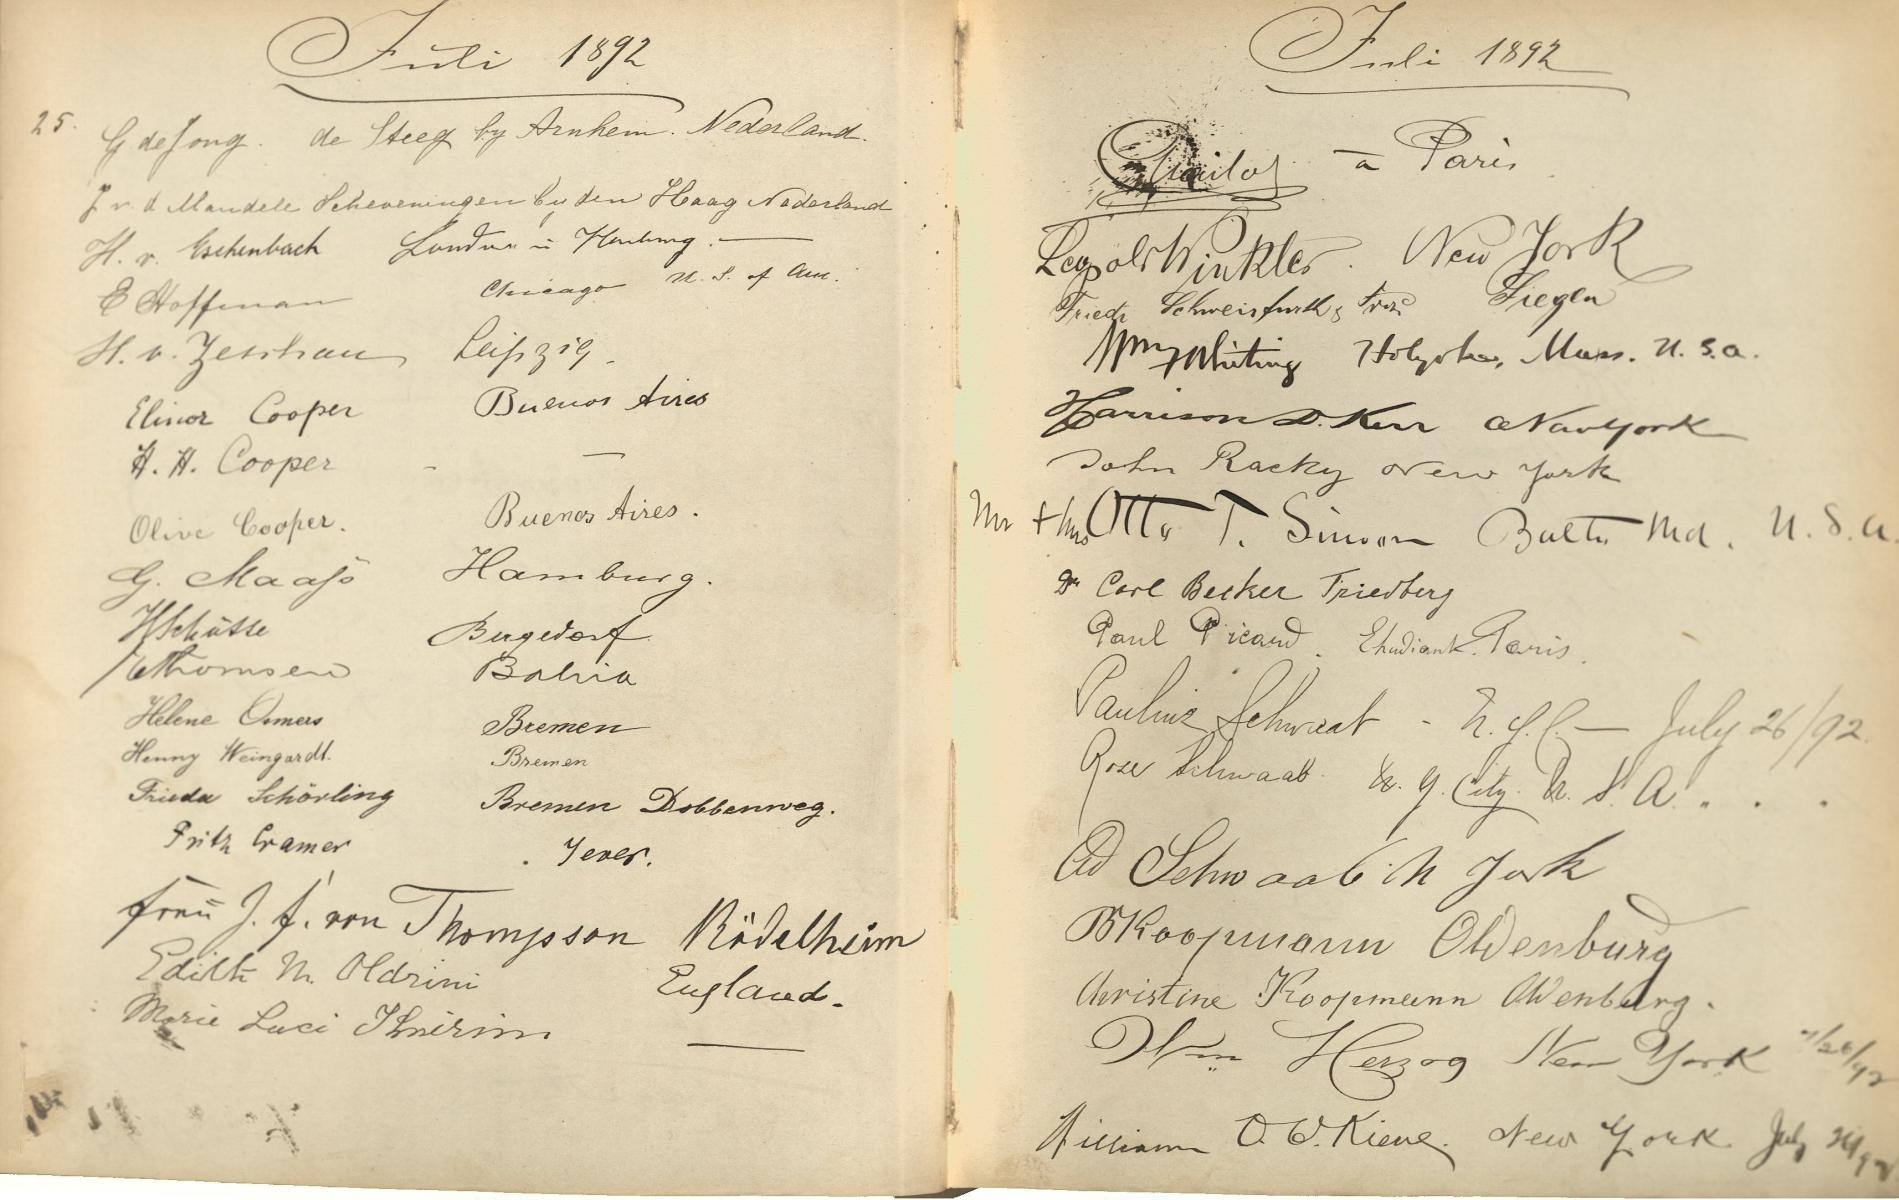 Juli 1892
25. G de Jong. de Steeg by Arnhem. Nederland.
J v. d Mandele Scheveningen by den Haag Nederland
H. v. Eschenbach London
E Hoffman Chicago U. S. of Am.
H. v. Zeschau Leipzig.
Elinor Cooper Buenos Aires
H. H. Cooper - —
Olive Cooper. Buenos Aires.
G. Maaß Hamburg.
HSchütte Bergedorf
Thomsen Bahia
Helene Osmers Bremen
Henny Weingardt. Bremen
Frieda Schörling Bremen Dobbenweg.
Fritz Cramer . Jever.
Frau J. f. von Thompson Rödelheim
Edith M. Oldrini England.
Marie Luci —
Juli 1892
a Paris
Leopold Winkler. New York
Friedr Schweisfurth & Frau Siegen
Wm Whiting Holyoke, Mass. U. S. a.
Harrison D. Kerr New York
John Racky New York
Mr + Mrs Otto T. Simon Balto Md. U. S. a.
Dr Carl Becker Friedberg
Paul Picard. Etudiant. Paris.
Pauline Schwaab - N. Y. C. — July 26/92
Rose Schwaab. N. Y. City. U. S. A. . .
Ad Schwaab N York
B Koopmann Oldenburg
Christine Koopmann Oldenburg.
Wm Herzog New York 7/26/92
William O. W. New York July 26/92